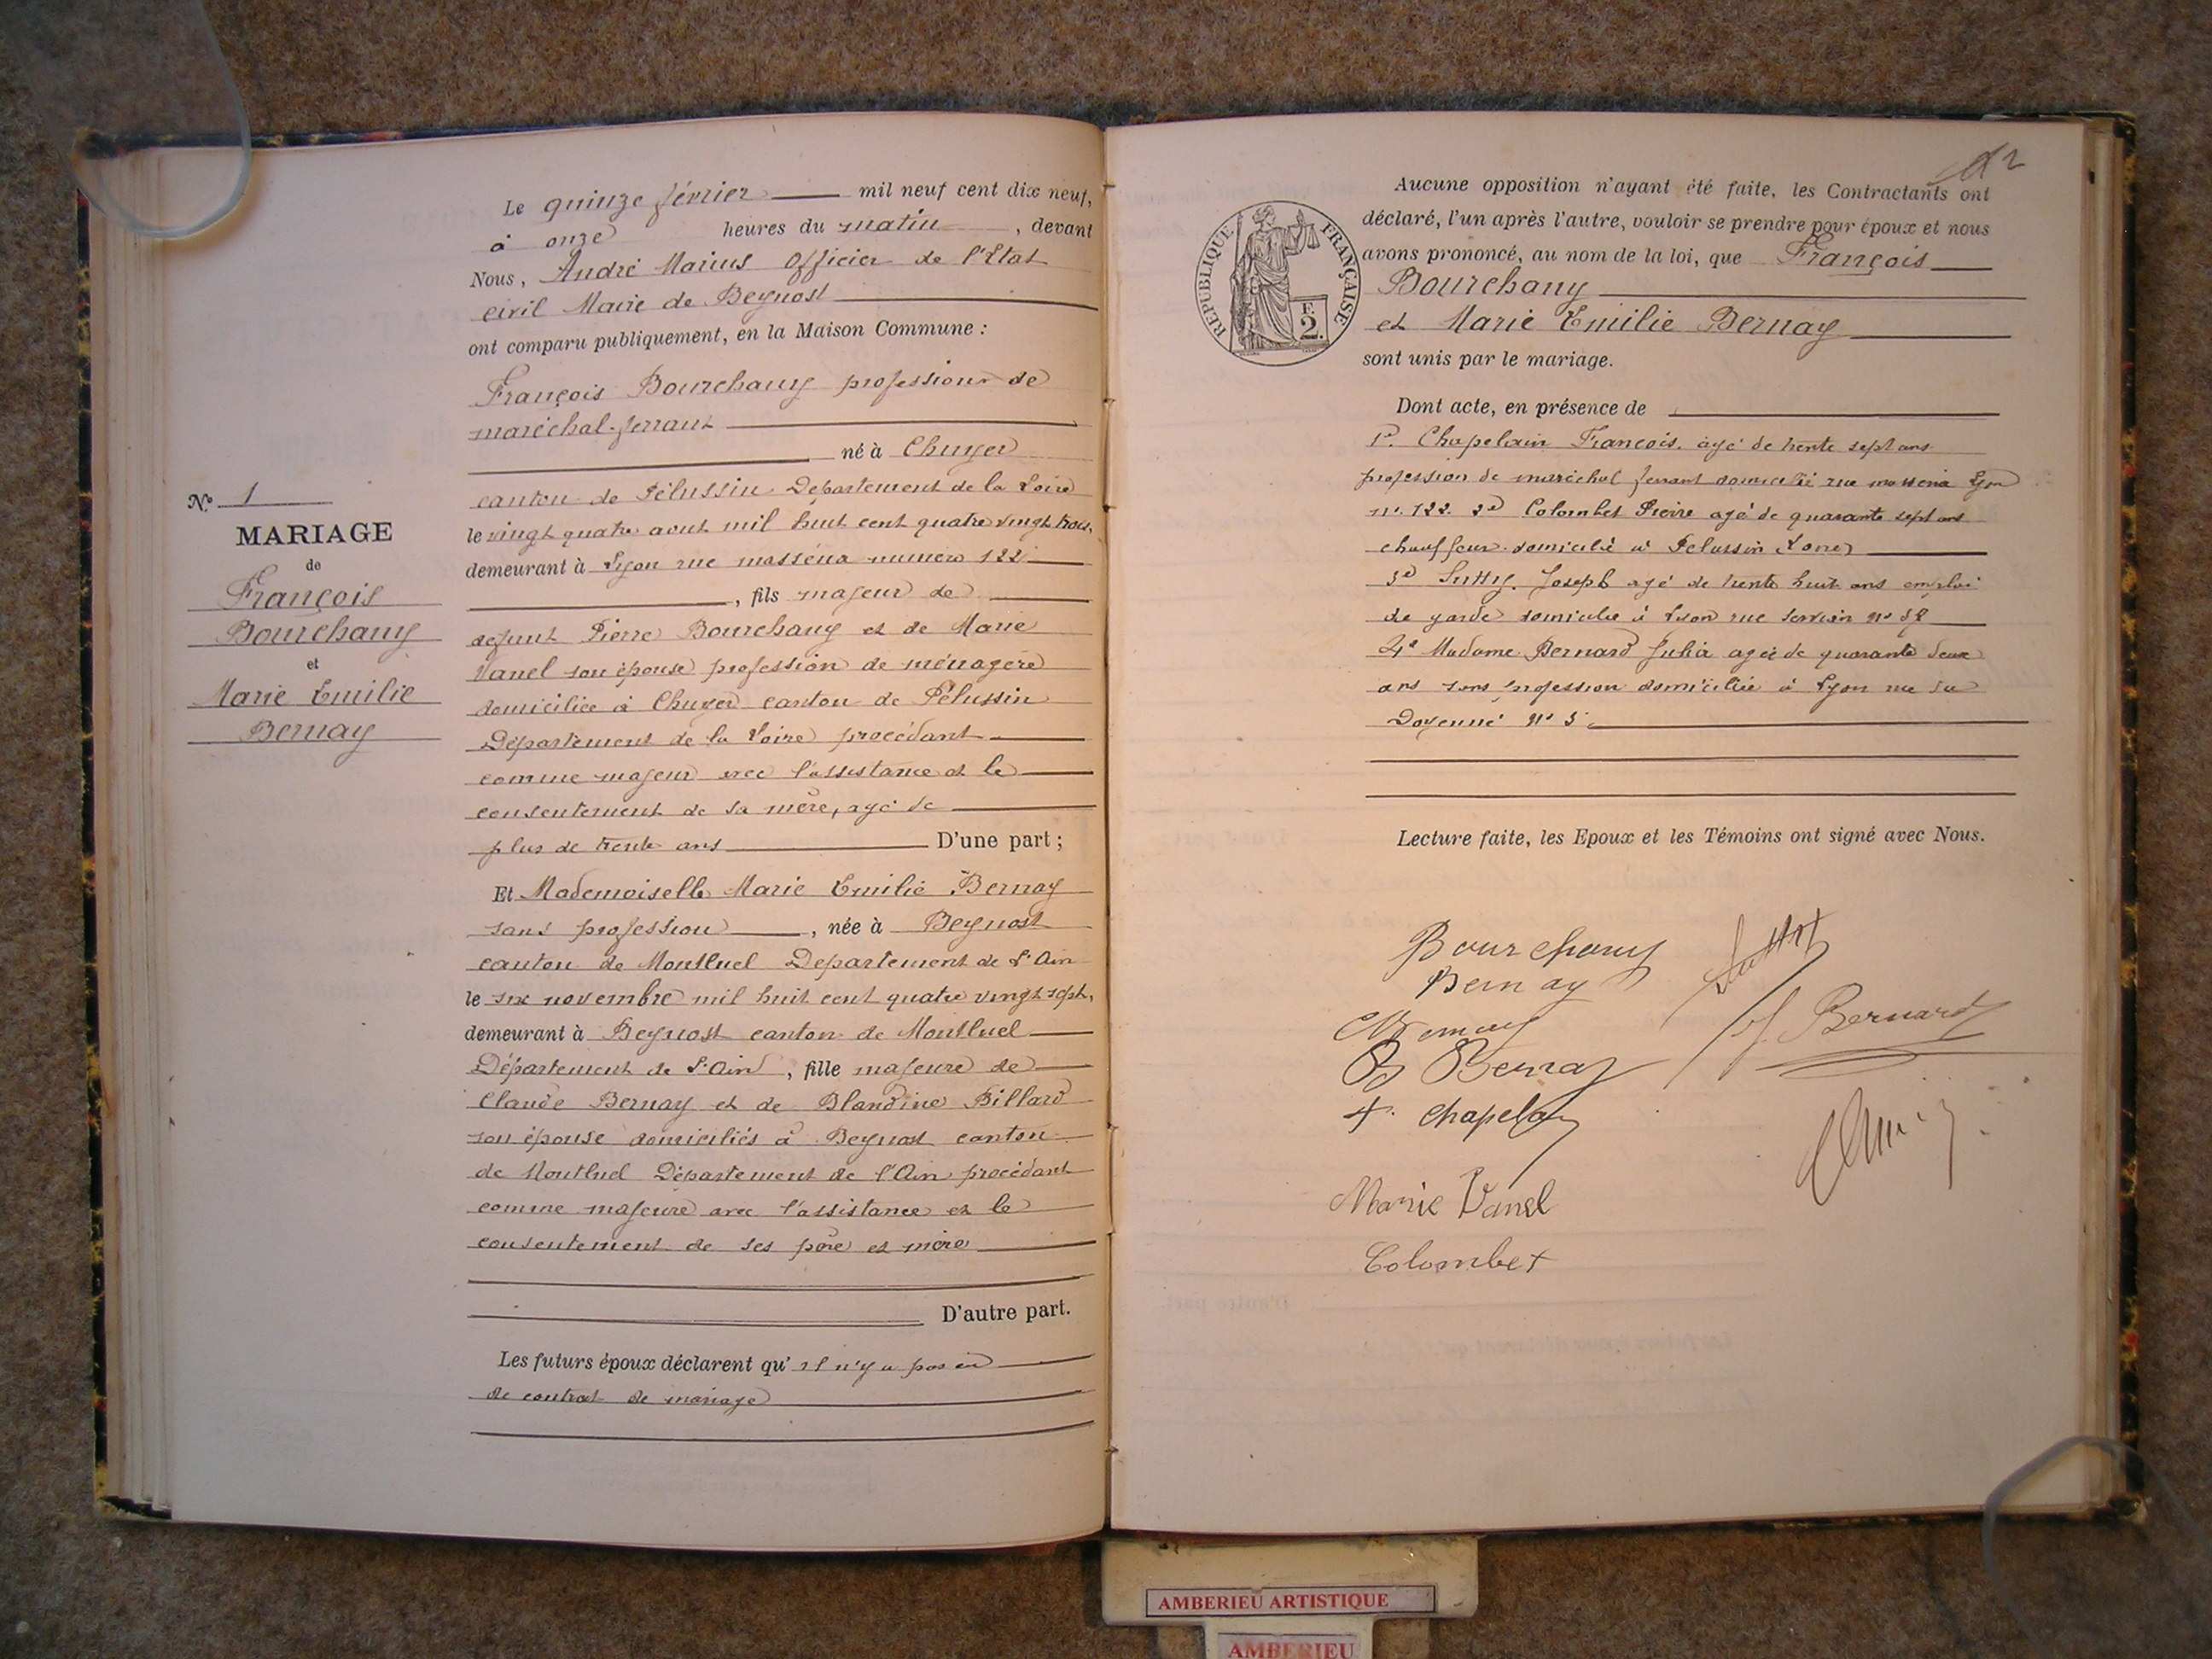 Le quinze février mil neuf cent dix neuf,
à onze heures du matin, devant
Nous, André Marius Officier de l'Etat
civil Maire de Beynost
ont comparu publiquement, en la Maison Commune :
François Bourchany profession de
maréchal-ferrant
né à Chuyer
canton de Pélussin Département de la Loire
le vingt quatre aout mil huit cent quatre vingt trois,
demeurant à Lyon rue masséna numéro 122
, fils majeur de
defunt Pierre Bourchany et de Marie
Vanel son épouse profession de ménagère
domiciliée à Chuyer canton de Pélussin
Département de la Loire procédant
comme majeur avec l'assistance et le
consentement de sa mère, agé de
plus de trente ans D'une part ;
Et Mademoiselle Marie Emilie Bernay
sans profession, née à Beynost
canton de Montluel Departement de l'Ain
le six novembre mil huit cent quatre vingt sept,
demeurant à Beynost canton de Montluel
Département de l'Ain, fille majeure de
Claude Bernay et de Blandine Billard
son épouse domiciliés à Beynost canton
de Montluel Département de l'Ain procédant
comme majeure avec l'assistance et le
consentement de ses père et mère
D'autre part.
Les futurs époux déclarent qu'il n'y a pas eu
de contrat de mariage
No 1
MARIAGE
de
François
Bourchany
et
Marie Emilie
Bernay
Aucune opposition n'ayant été faite, les Contractants ont
déclaré, l'un après l'autre, vouloir se prendre pour époux et nous
avons prononcé, au nom de la loi, que François
Bourchany
et Marie Emilie Bernay
sont unis par le mariage.
RÉPUBLIQUE FRANÇAISE
F.
2.
Dont acte, en présence de
1º. Chapelain François. agé de trente sept ans
profession de maréchal ferrant domicilié rue massena Lyon
nº. 122. 2º Colombet Pierre agé de quarante sept ans
chauffeur domicilié à Pelussin Loire
3º Joseph agé de trente huit ans emploi
de garde domicilié à Lyon rue nº
4º Madame Bernard Julia agée de quarante deux
ans sans profession domiciliée à Lyon rue du
Doyenné nº 5
Lecture faite, les Epoux et les Témoins ont signé avec Nous.
Bourchany
Bernay
Bernay
B Bernay
J. Bernard
F. Chapelain
Marie Vanel
Colombet
AMBERIEU ARTISTIQUE
AMBERIEU